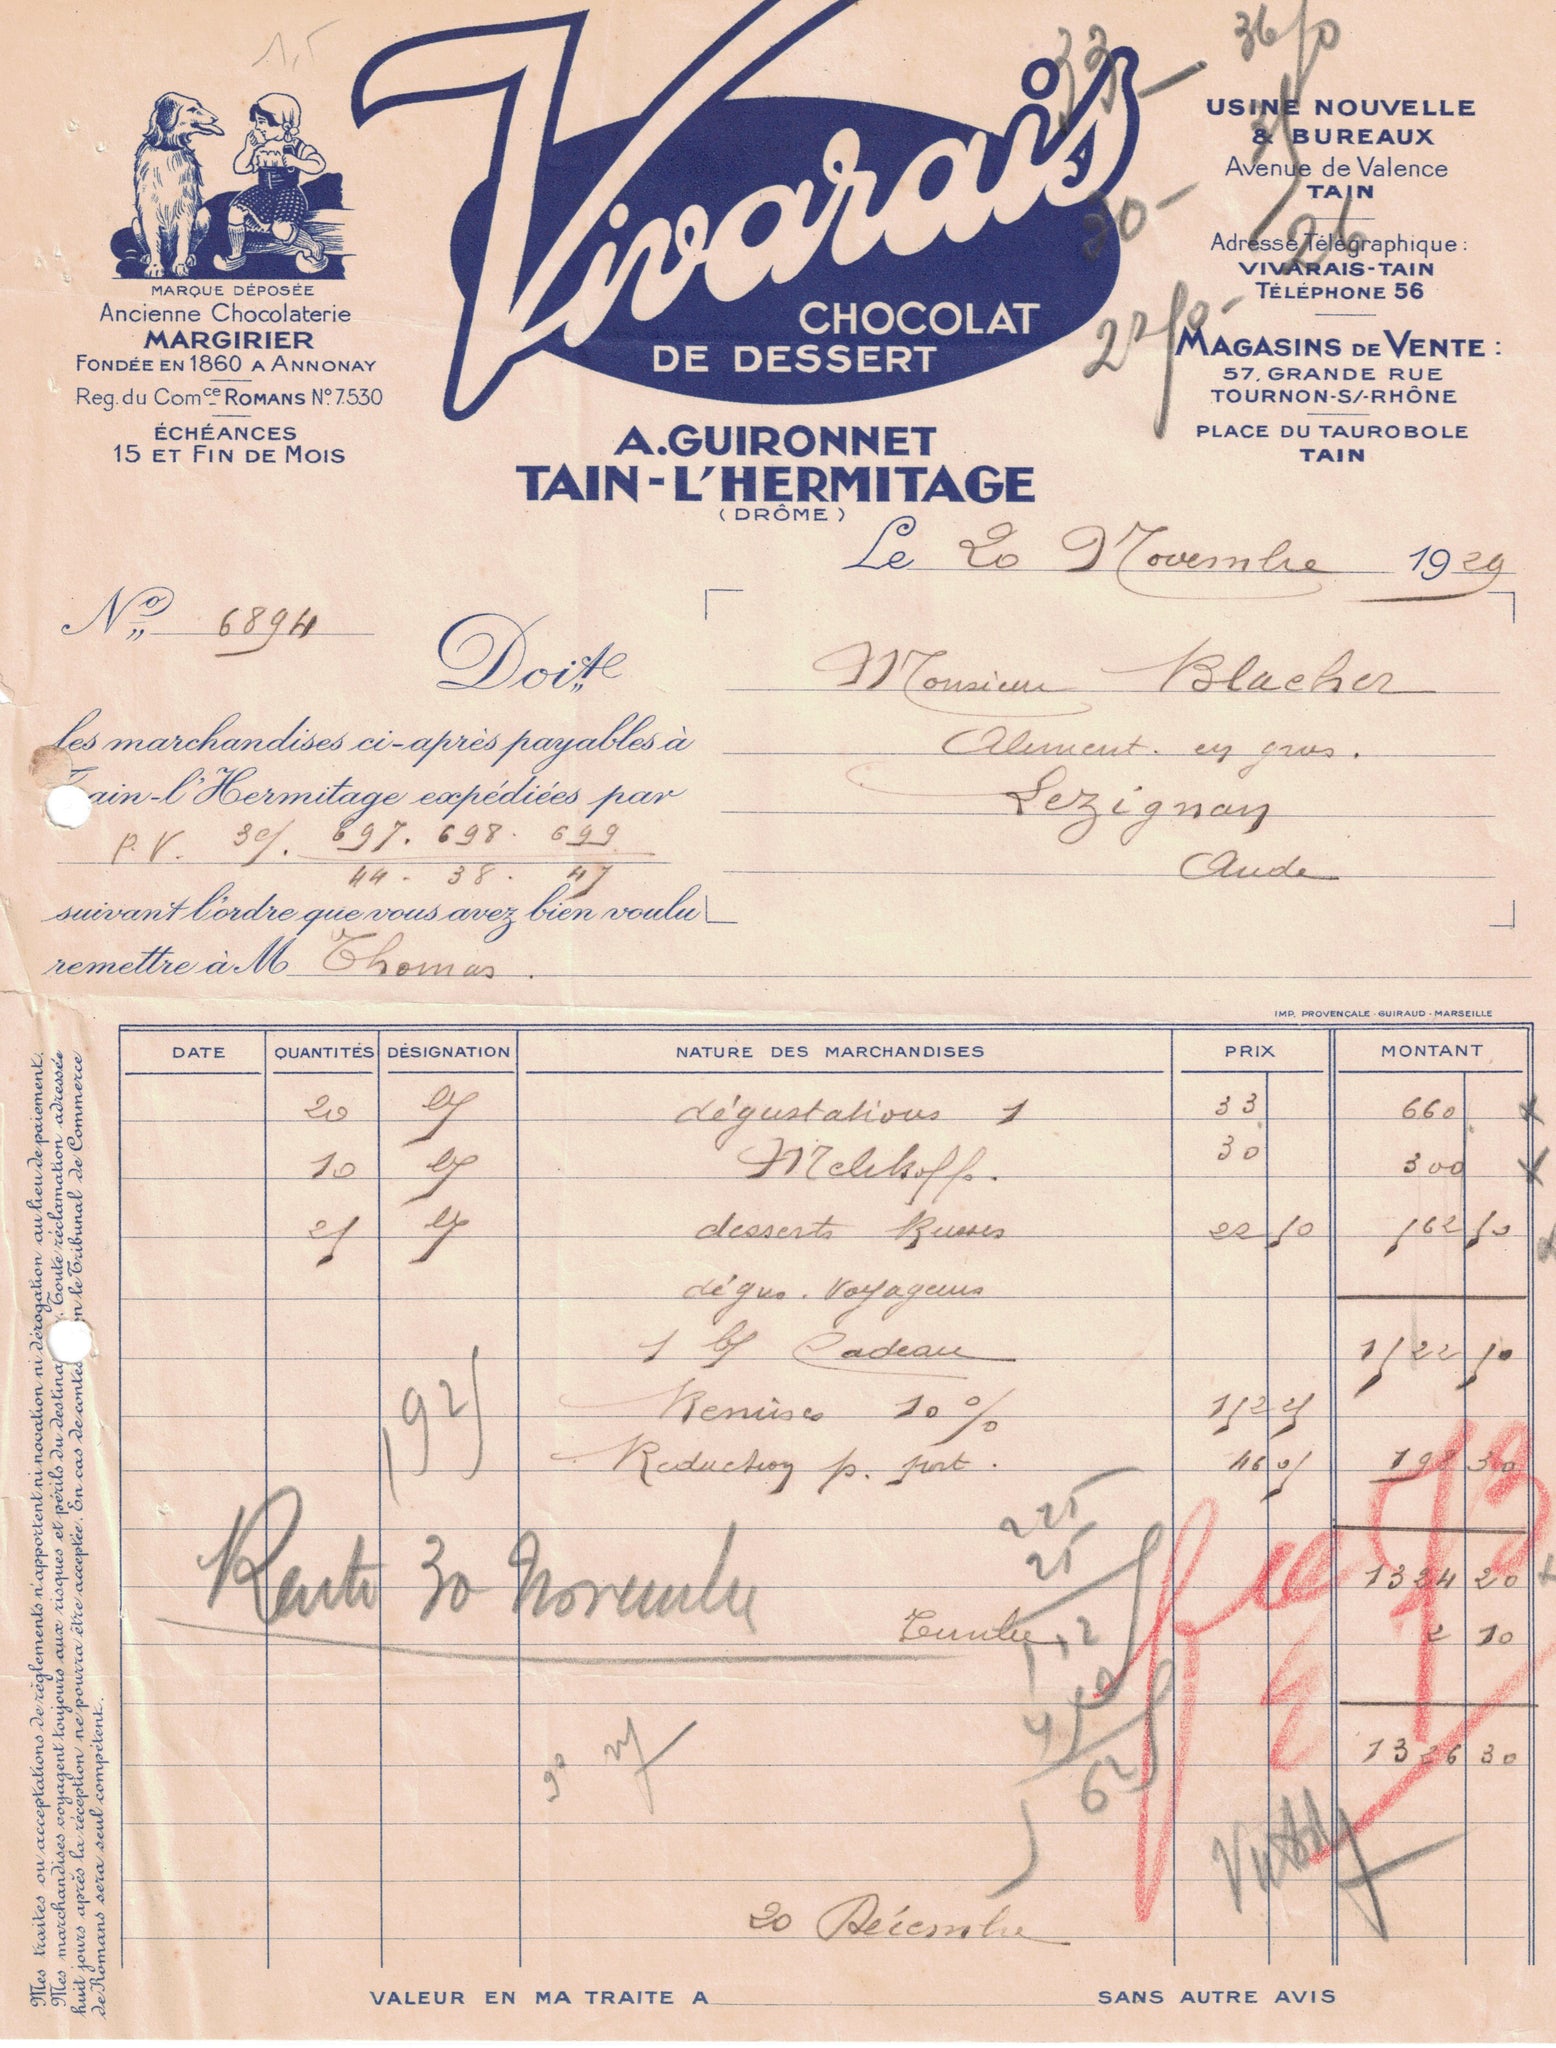 Vivarais
CHOCOLAT
DE DESSERT
A. GUIRONNET
TAIN-L'HERMITAGE
(DRÔME)
MARQUE DÉPOSÉE
Ancienne Chocolaterie
MARGIRIER
FONDÉE EN 1860 A ANNONAY
Reg. du Comce ROMANS No. 7.530
ÉCHÉANCES
15 ET FIN DE MOIS
USINE NOUVELLE
& BUREAUX
Avenue de Valence
TAIN
Adresse Télégraphique :
VIVARAIS-TAIN
TÉLÉPHONE 56
MAGASINS DE VENTE :
57, GRANDE RUE
TOURNON-S/-RHÔNE
PLACE DU TAUROBOLE
TAIN
33 - 36 50
30 - 26
22 50 -
Le 20 Novembre 1929
No 6894
Doit
Monsieur Blacher
Aliment. en gros.
Lezignan
Aude
les marchandises ci-après payables à
Tain-l'Hermitage expédiées par
P.V. 3c/. 697. 698. 699
44 - 38 - 47
suivant l'ordre que vous avez bien voulu
remettre à M Thomas.
IMP. PROVENÇALE - GUIRAUD - MARSEILLE
DATE QUANTITÉS DÉSIGNATION NATURE DES MARCHANDISES PRIX MONTANT
20 dégustations 1 33 660
10 Melikoff. 30 300
25 desserts Russes 22 50 562 50
dégus. Voyageurs
1 Cadeau 1522 50
Remises 10% 152 25
Reduction p. port. 46 05 198 30
1324 20
Timbre 2 10
1326 30
192
Rente 30 Novembre
225
25
62
20 Décembre
VALEUR EN MA TRAITE A SANS AUTRE AVIS
Mes traites ou acceptations de règlements n'apportent ni novation ni dérogation au lieu de paiement.
Mes marchandises voyagent toujours aux risques et périls du destina Toute réclamation adressée
huit jours après la réception ne pourra être acceptée. En cas de contes on le Tribunal de Commerce
de Romans sera seul compétent.